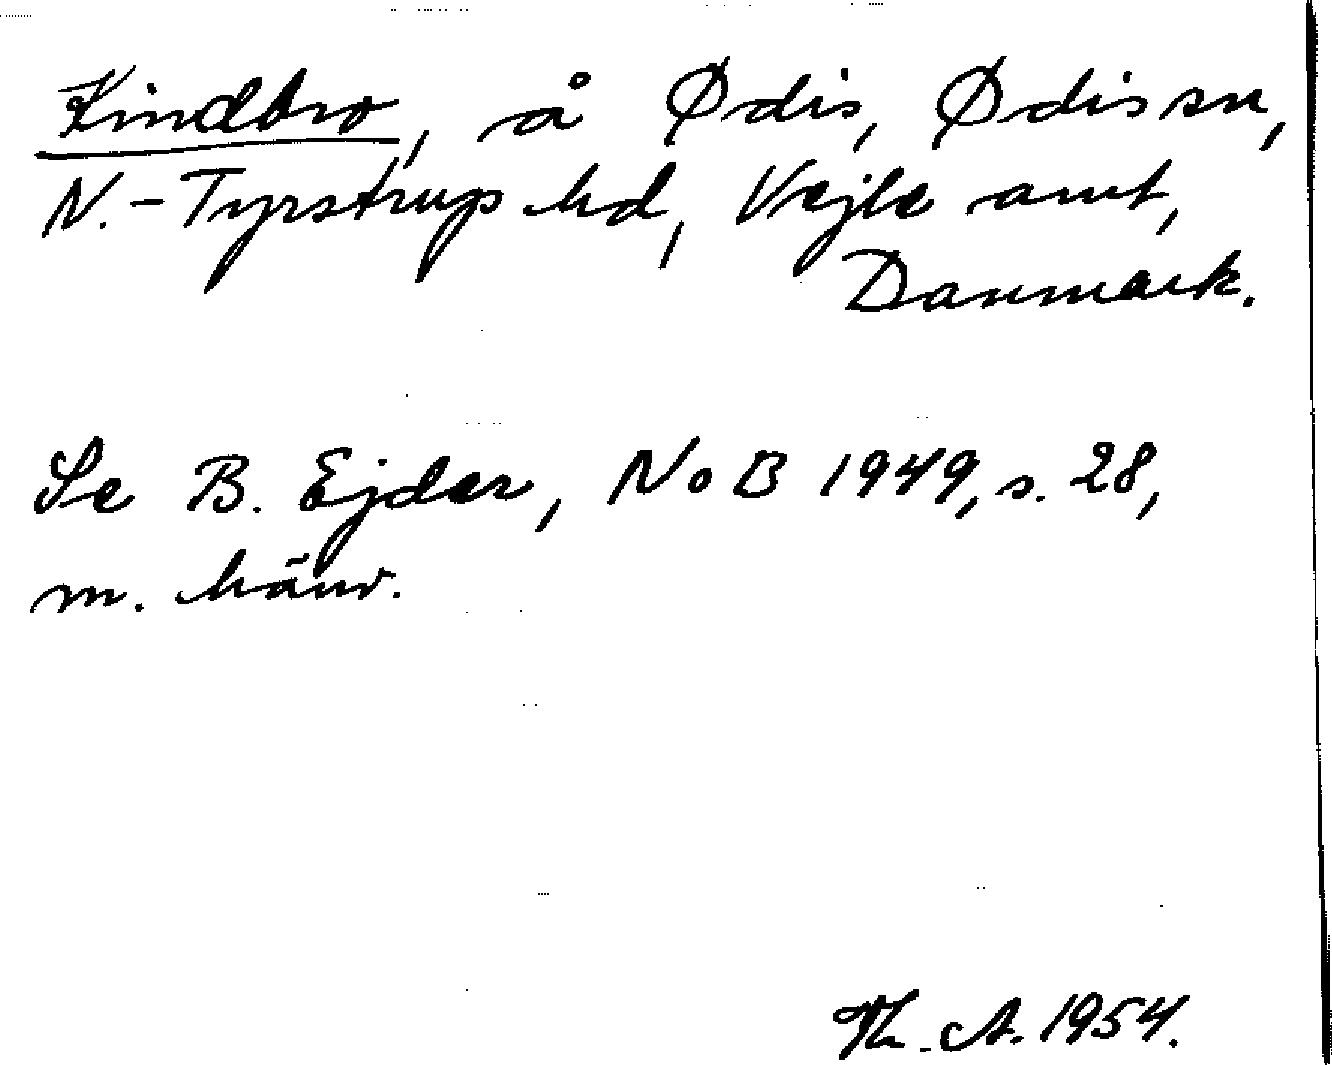 Kindbro, å Ødis, Ødis sn,
N.-Tyrstrup hd, Vejle amt,
Danmark.
Se B. Ejder, NoB 1949, s. 28,
m. hänv.
Th. A. 1954.